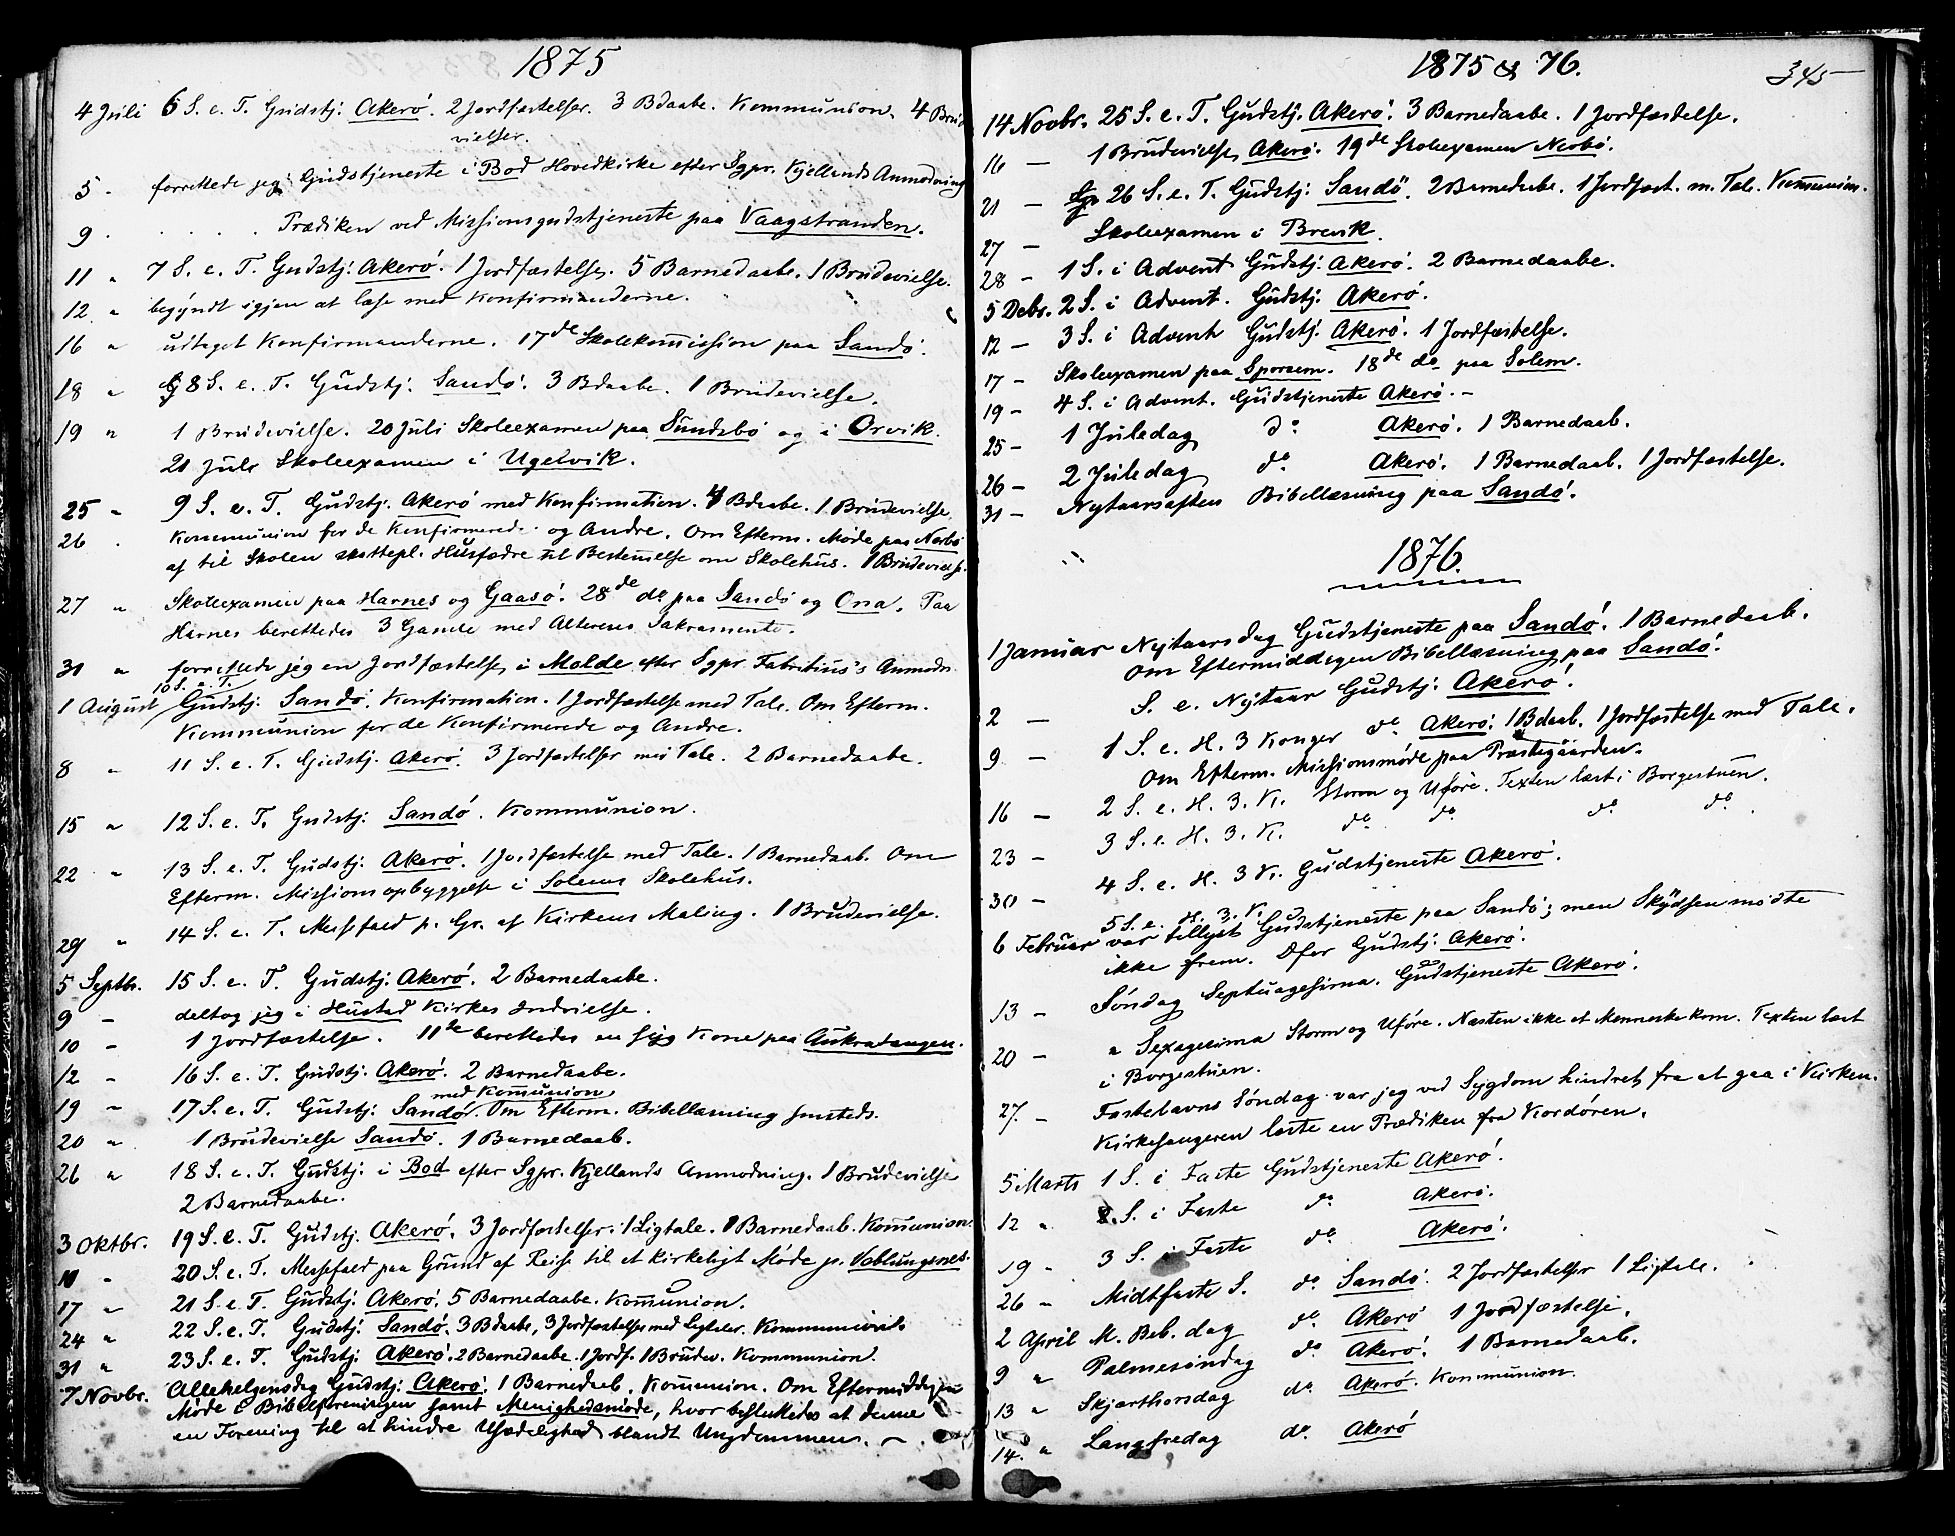 1875
4 Juli 6 S. e. T. Gudstj. Akerö. 2 Jordfæstelser. 3 Bdaabe. Kommunion. 4 Brud
vielser.
5 . forrettede jeg Gudstjeneste i Bod Hovedkirke efter Sgpr. Kjellands Anmodning
9 . . . . . . Prædiken ved Missionsgudstjeneste paa Vaagstranden.
11 " 7 S. e. T. Gudstj: Akerö. 1 Jordfæstelse. 5 Barnedaabe. 1 Brudevielse.
12 " begyndt igjen at læse med Konfirmanderne.
16 " udtaget Konfirmanderne. 17de Skolekom̄ission paa Sandö.
18 " 8 S. e. T. Gudstj. Sandö. 3 Bdaabe. 1 Brudevielse.
19 " 1 Brudevielse. 20 Juli Skoleexamen paa Sundsbö og i Orvik.
21 Juli Skoleexamen i Ugelvik.
25 " 9 S. e. T. Gudstj. Akerö med Konfirmation. 4 Bdaabe. 1 Brudevielse
26 . Kommunion for de Konfirmerede og Andre. Om Efterm. Möde paa Nerbö
af til Skolen skattepl. Husfædre til Bestem̄else om Skolehus. 1 Brudevielse
27 " Skoleexamen paa Harnes og Gaasö. 28de do paa Sandö og Ona. Paa
Harnes berettedes 3 Gamle med Alterens Sakramente.
31 " forrettede jeg en Jordfæstelse i Molde efter Sgpr. Fabritius's Anmodn.
10 S. e. T.
1 August Gudstj. Sandö. Konfirmation. 1 Jordfæstelse med Tale. Om Efterm.
Kommunion for de Konfirmerede og Andre.
8 " 11 S. e. T. Gudstj. Akerö. 3 Jordfæstelser med Tale. 2 Barnedaabe.
15 " 12 S. e. T. Gudstj: Sandö. Kommunion.
22 " 13 S. e. T. Gudstj: Akerö. 1 Jordfæstelse med Tale. 1 Barnedaab. Om
Efterm. Missionsopbyggelse i Solems Skolehus.
29 " 14 S. e. T. Messefald p. Gr. af Kirkens Maling. 1 Brudevielse.
5 Septbr. 15 S. e. T. Gudstj: Akerö. 2 Barnedaabe.
9 - deltog jeg i Hustad Kirkes Indvielse.
10 - 1 Jordfæstelse. 11te berettedes en syg Kone paa Aukradangen.
12 - 16 S. e. T. Gudstj. Akerö. 2 Barnedaabe.
med Kom̄union
19 - 17 S. e. T. Gudstj: Sandö. Om Efterm. Bibellæsning smsteds.
20 " 1 Brudevielse Sandö. 1 Barnedaab.
26 " 18 S. e. T. Gudstj: i Bod efter Sgpr. Kjellands Anmodning. 1 Brudevielse
2 Barnedaabe.
3 Oktbr. 19 S. e. T. Gudstj: Akerö. 3 Jordfæstelser. 1 Ligtale. 1 Barnedaab. Kom̄union.
10 " 20 S. e. T. Messefald paa Grund af Reise til et kirkeligt Möde p. Veblungsnes.
17 " 21 S. e. T. Gudstj: Akerö. 5 Barnedaabe. Kom̄union.
24 " 22 S. e. T. Gudstj: Sandö. 3 Bdaabe, 3 Jordfæstelser med Ligtaler. Kommunion.
31 " 23 S. e. T. Gudstj: Akerö. 2 Barnedaabe. 1 Jordf. 1 Brudev. Kommunion.
7 Novbr. Allehelgensdag Gudstj: Akerö. 1 Barnedaab. Kom̄union. Om Eftermiddagen
Möde i Bibelforeningen samt Menighedsmöde, hvor besluttedes at danne
en Forening til at hindre Usædelighed blandt Ungdommen.
1875 & 76.
345
14 Novbr. 25 S. e. T. Gudstj. Akerö. 3 Barnedaabe. 1 Jordfæstelse.
16 — 1 Brudevielse, Akerö. 19de Skoleexamen Nerbö.
21 — 26 S. e. T. Gudstj: Sandö. 2 Barnedaabe. 1 Jordfæst. m. Tale. Kom̄union.
27 — Skoleexamen i Breivik.
28 — 1 S. i Advent Gudstj: Akerö. 2 Barnedaabe.
5 Debr. 2 S. i Advent. Gudstj. Akerö.
12 — 3 S. i Advent Gudstj. Akerö. 1 Jordfæstelse.
17 - Skoleexamen paa Sporsem. 18de do paa Solem.
19 - 4 S. i Advent. Gudstjeneste Akerö. -
25 - 1 Juledag do Akerö. 1 Barnedaab.
26 - 2 Juledag do Akerö. 1 Barnedaab. 1 Jordfæstelse.
31 - Nytaarsaften Bibellæsning paa Sandö.
1876.
1 Januar Nytaarsdag Gudstjeneste paa Sandö. 1 Barnedaab.
Om Eftermiddagen Bibellæsning paa Sandö.
2 — S. e. Nytaar Gudstj: Akerö.
9 — 1 S. e. H. 3 Konger do Akerö. 1 Bdaab. 1 Jordfæstelse med Tale.
Om Efterm. Missionsmöde paa Præstegaarden.
16 — 2 S. e. H. 3. K. Storm og Uföre. Texten læst i Borgestuen.
23 - 3 S. e. H. 3. K. do do do do
30 - 4 S. e. H. 3 K. Gudstjeneste Akerö.
5 S. e. H. 3. K.
6 Februar var tillyst Gudstjeneste paa Sandö; men Skydsen mödte
ikke frem. Dfor Gudstj: Akerö.
13 - Söndag Septuagesima. Gudstjeneste Akerö.
20 - " Sexagesima Storm og Uföre. Næsten ikke et Menneske kom. Texten læst
i Borgestuen.
27. - Fastelavns Söndag var jeg ved Sygdom hindret fra at gaa i Kirken.
Kirkesangeren læste en Prædiken fra Kordören.
5 Marts 1 S. i Faste Gudstjeneste Akerö.
12 " 2. S. i Faste do Akerö.
19 - 3 S. i Faste do Akerö.
26 - Midtfaste S. do Sandö. 2 Jordfæstelser 1 Ligtale.
2 April M. Beb. dag do Akerö 1 Jordfæstelse.
9 " Palmesöndag do Akerö. 1 Barnedaab.
13 " Skjærthorsdag do Akerö. Kommunion.
14. " Langfredag do Akerö